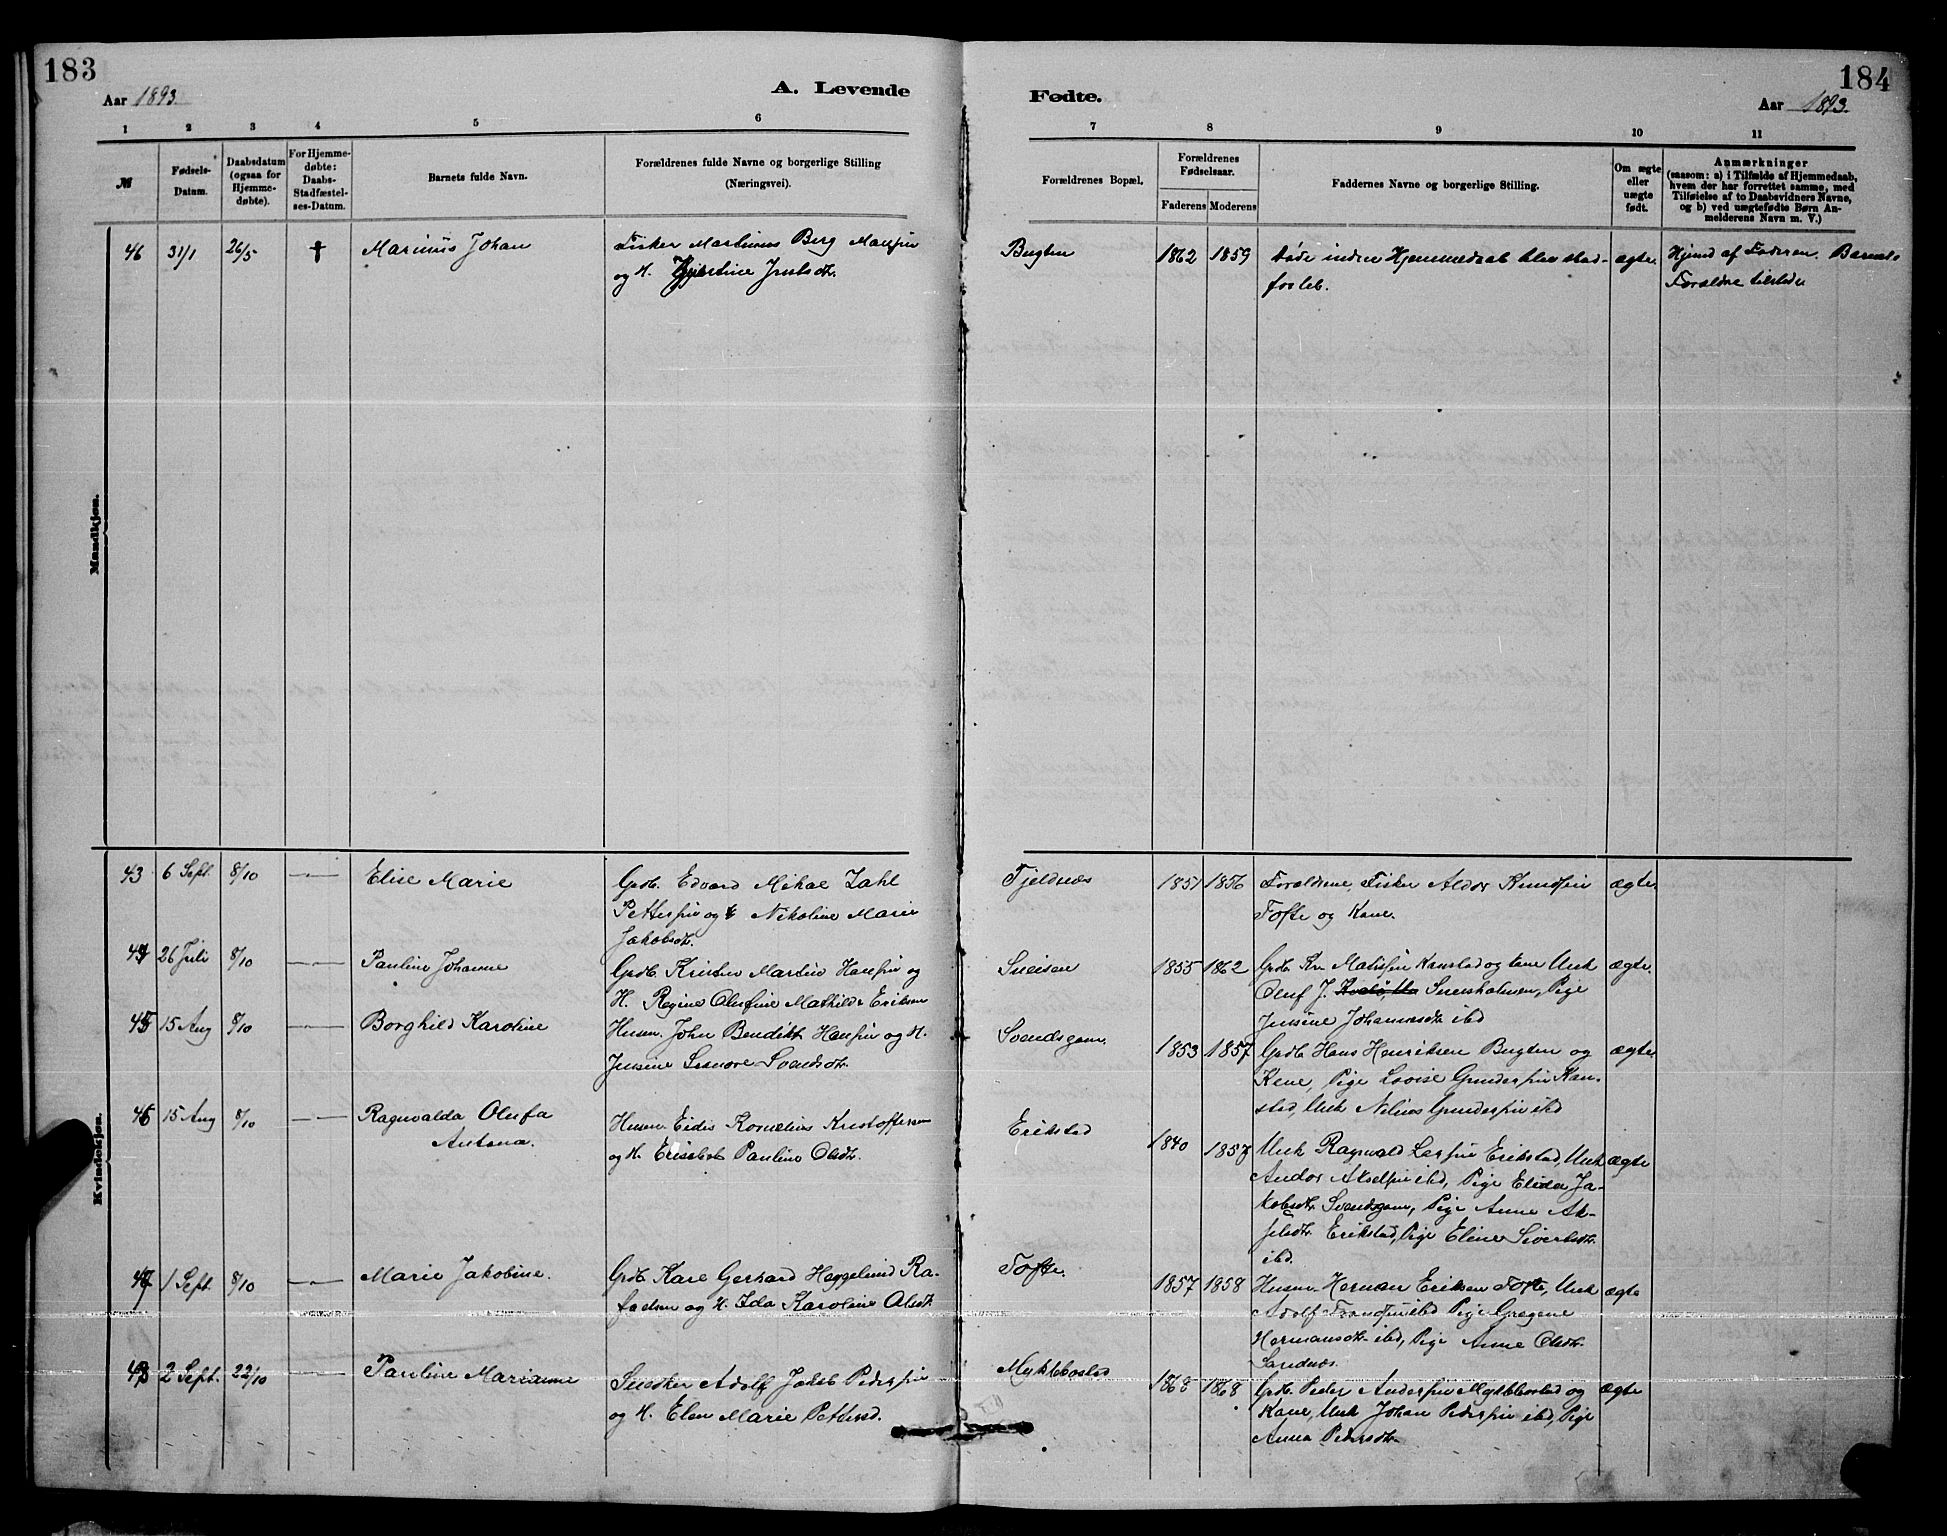 183
Aar 1893
A. Levende
1 2 3 4 5 6
№
Fødsels-
Datum.
Daabsdatum
(ogsaa for
Hjemme-
døbte).
For Hjemme-
døbte:
Daabs-
Stadfæstel-
ses-Datum.
Barnets fulde Navn.
Forældrenes fulde Navne og borgerlige Stilling
(Næringsvei).
Mandkjøn.
46 31/1 26/5 † Marinus Johan Fisker Martinus Berg
og H.
Kvindekjøn.
43 6 Sept. 8/10 Elise Marie Grdb. Edvard Mikal Zahl
og Nikoline Marie
Jakobsdtr.
44 26 Juli 8/10 Pauline Johanne Grdb. Kristen Martin Hansen og
H. Regine Olufine Mathilde Eriksen
45 15 Aug 8/10 Borghild Karoline Husm. John Benedikt Hansen og H.
Jensine Svendsdtr.
46 15 Aug 8/10 Ragnvalda Olufa Husm. Kornelius Kristoffersen
Antona. og H. Elisabet Pauline Olsdtr.
47 1 Sept. 8/10 Marie Jakobine. Grdb. Kare Gerhard Heggelund Ra-
og H. Ida Karoline Olsdtr.
48 2 Sept. 22/10 Pauline Marianne Snedker Adolf Jakob Pedersen
og H. Elen Marie
184
Fødte.
Aar 1893.
7 8 9 10 11
Forældrenes Bopæl.
Forældrenes
Fødselsaar.
Faderens Moderens
Faddernes Navne og borgerlige Stilling.
Om ægte
eller
uægte
født.
Anmærkninger
(saasom: a) i Tilfælde af Hjemmedaab,
hvem der har forrettet samme, med
Tilføielse af to Daabsvidners Navne,
og b) ved uægtefødte Børn An-
melderens Navn m. V.)
Bugten 1862 1859 døde inden Hjemmedaab blev stad- ægte. Hjemd af Faderen. Barnets
Forældre tilstede
Fjeldnæs 1851 1856 Forældrene, Fisker Aldor Knudsen ægte.
Tofte og Kone.
1855 1862 Grdb. Kr. Kanstad og Ungk ægte.
Oluf J. Pige
Jensine ibd
Svendsgam. 1853 1857 Grdb Hans Henriksen Bugten og ægte
Kone, Pige Lovise Kan-
stad, Ungk ibd
Erikstad 1840 1857 Ungk Ragnvald Erikstad, Ungk ægte
Andor Akselsen ibd, Pige Elida Ja-
kobsdtr. Svendsgam, Pige Anna Ak-
selsdtr. Erikstad, Pige Eline Sivertsdtr.
ibd.
Tofte. 1857 1858 Husm. Herman Eriksen Tofte, Ungk ægte
Adolf ibd Pige
Hermansdtr. ibd, Pige Anne Olsdtr.
Sandnæs.
Myklebostad 1868 1868 Grdb. Peder Andersen Myklebostad og ægte
Kone, Ungk Johan Pedersen ibd, Pige
Anna Pedersdtr.